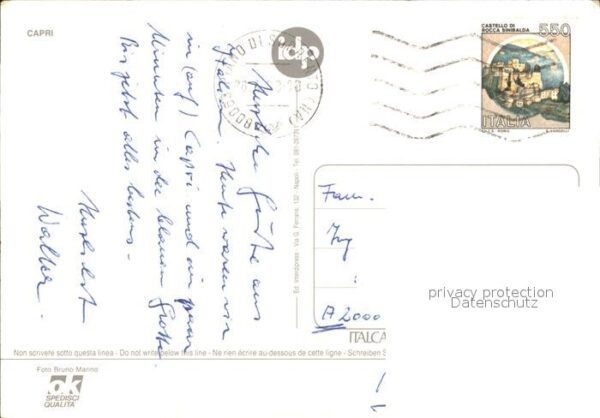 CAPRI
idp
CASTELLO DI
ROCCA SINIBALDA
550
ITALIA
Herzliche Grüße aus
Italien. Heute waren wir
in (auf) Capri und ein paar
Minuten in der blauen Grotte.
Bis jetzt alles bestens.
Herzlichst
Walter.
Ed. Interdipress - Via G. Ferraris, 132 - Napoli - Tel.
Fam.
Ing
:
A 2000
privacy protection
Datenschutz
ITALCA
Non scrivere sotto questa linea - Do not write below this line - Ne rien écrire au-dessous de cette ligne - Schreiben S
Foto Bruno Marino
ok
SPEDISCI
QUALITÀ